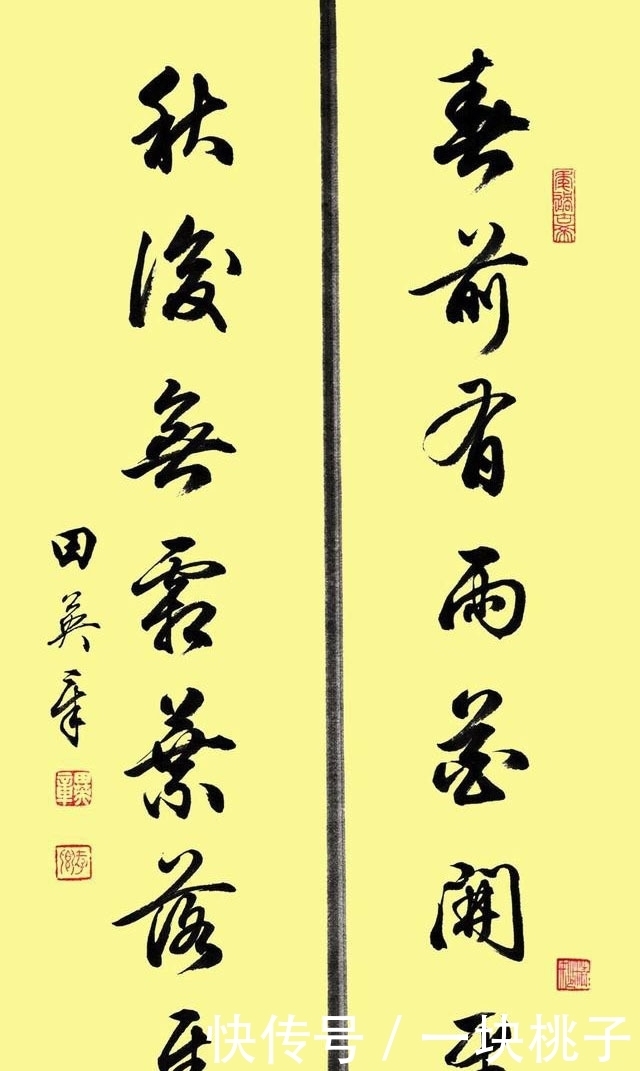 春前有雨花開早
秋後無霜葉落
田英章
快传号 / 一块桃子